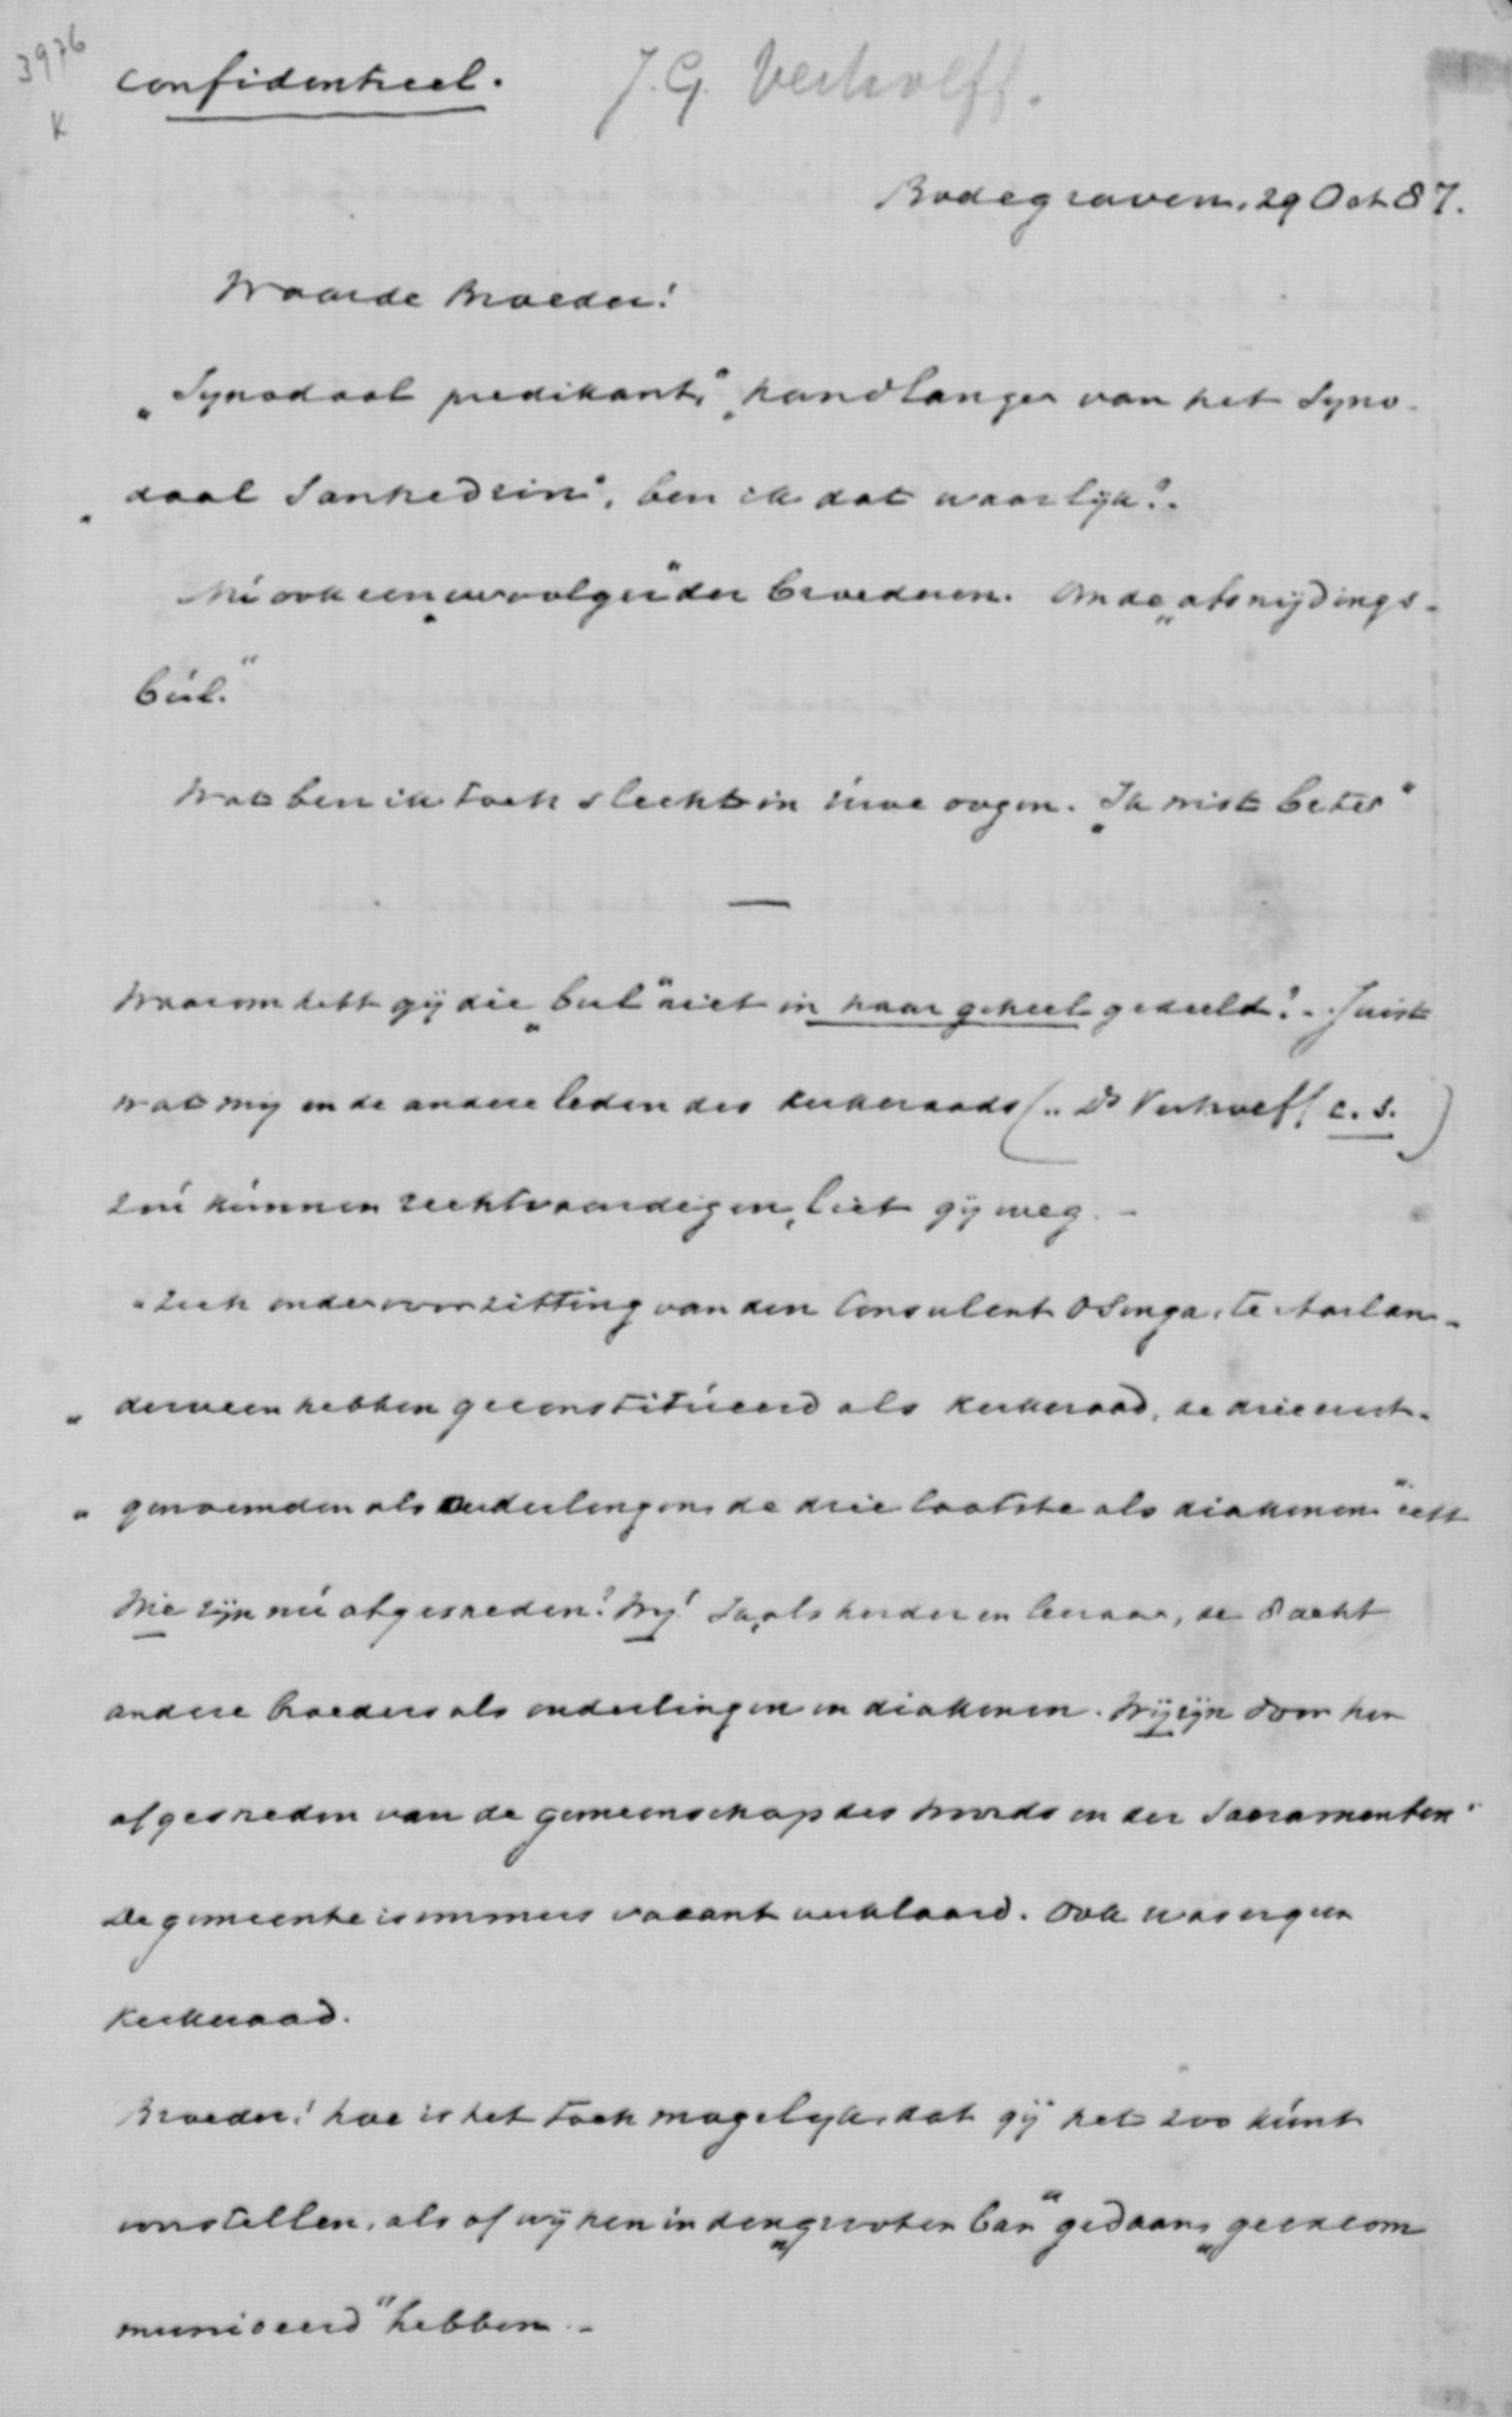 3976
K
confidentieel.
J. G. Verhoeff.
Bodegraven, 29 Oct 87.
Waarde Broeder!
„Synodaal predikant," „handlanger van het Syno-
„daal Sanhedrin", ben ik dat waarlijk?.
Nú ook een „vervolger" der broederen. Om de „afsnijdings-
búl."
Wat ben ik toch slecht in úwe oogen. „Ik wist beter"
Waarom hebt gij die „bul" niet in haar geheel gedeeld?. Juist
wat mij en de andere leden des kerkeraads (.. Ds Verhoeff c. s.)
zoú kúnnen rechtvaardigen, liet gij weg. -
„zich onder voorzitting van den Consulent Osinga, te Aarlan-
„derveen hebben geconstitúeerd als kerkeraad, de drie eerst-
„genoemden als ouderlingen, de drie laatste als diakenen" etc
Wie zijn nú afgesneden? Wij! Ik, als herder en leeraar, de 8 acht
andere broeders als ouderlingen en diakenen. Wij zijn door hen
afgesneden van de gemeenschap des Woords en der Sacramenten.
De gemeente is immers vacant verklaard. Ook was er geen
kerkeraad.
Broeder! hoe is het toch mogelijk, dat gij het zoo kúnt
voorstellen, als of wij hen in den „grooten ban" gedaan, „geexcom
municeerd" hebben. -